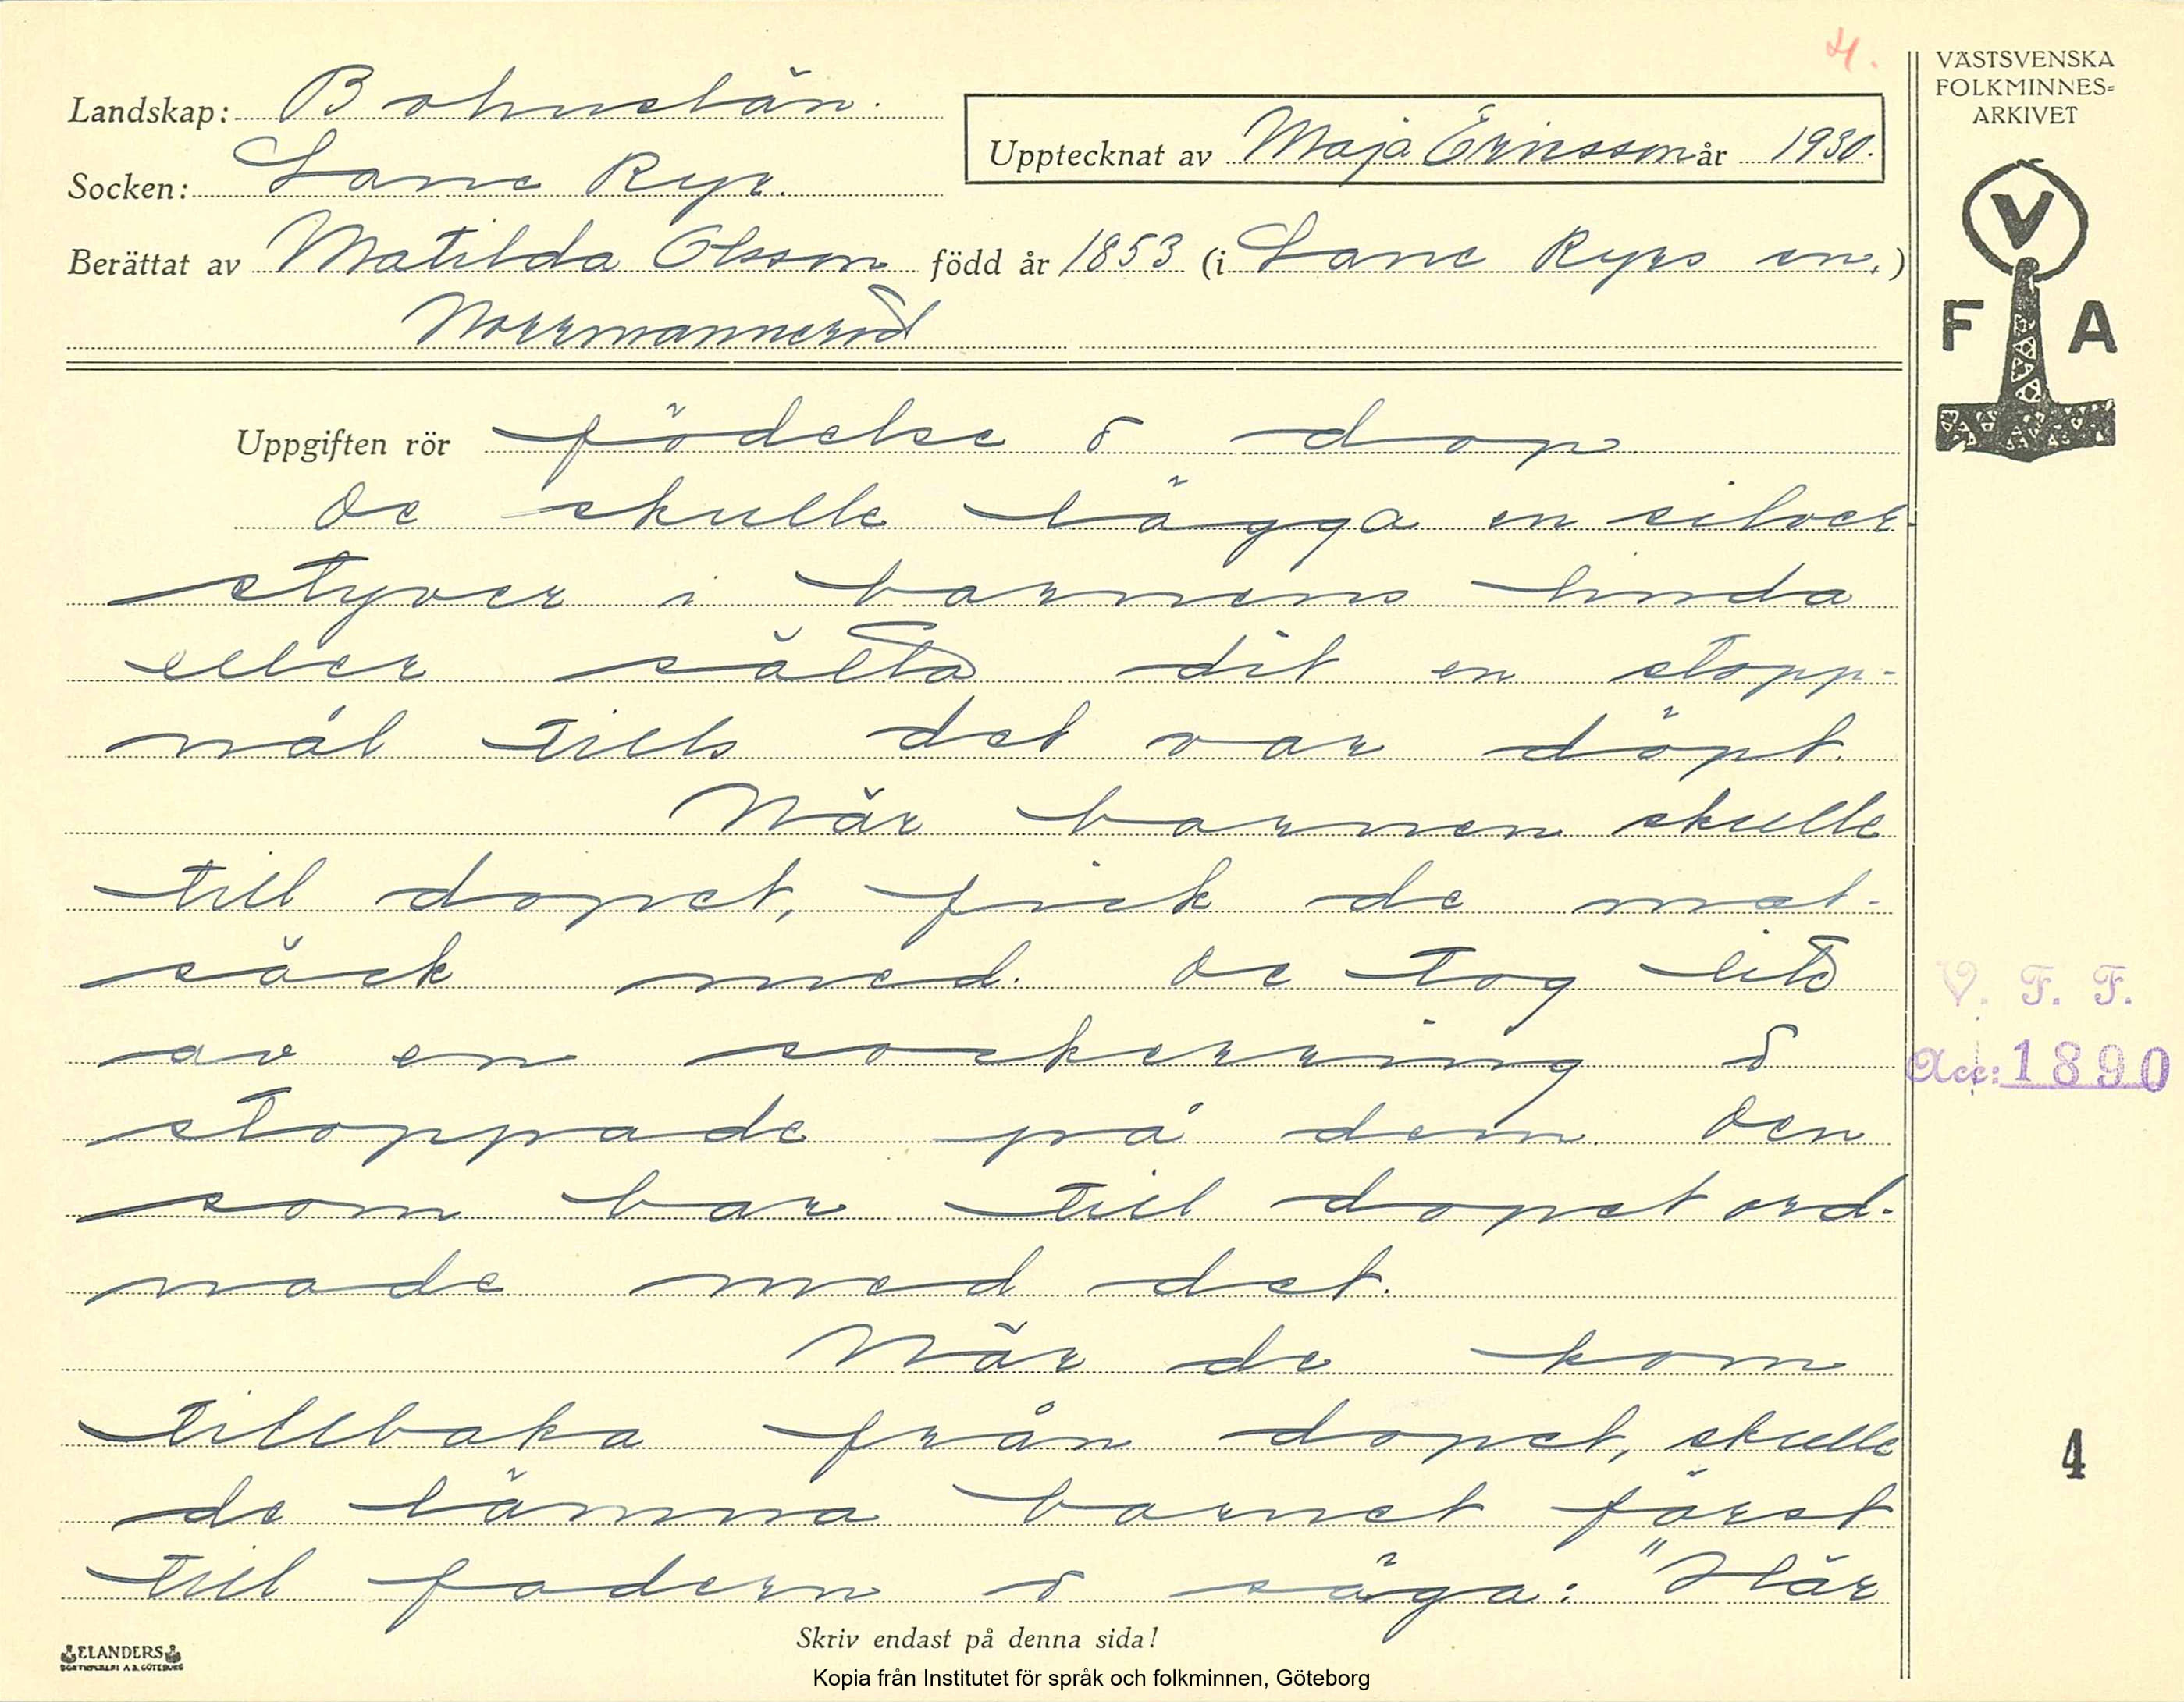 4.
VÄSTSVENSKA
FOLKMINNES=
ARKIVET
Landskap: Bohuslän.
Upptecknat av Maja Ericsson år 1930.
Socken: Lane Ryr.
Berättat av Matilda Olsson född år 1853 (i Lane Ryrs sn.)
Norrmanneröd
V
F A
Uppgiften rör födelse & dop
De skulle lägga en silver
styver i barnens linda
eller sätta dit en stopp-
nål tills det var döpt.
När barnen skulle
till dopet, fick de mat-
säck med. De tog litet
av en sockerring &
stoppade på dem. Den
som bar till dopet ord-
nade med det.
När de kom
tillbaka från dopet, skulle
de lämna barnet först
till fadern & säga: "Här
V. F. F.
Acc: 1890
4
Skriv endast på denna sida!
ELANDERS
BOKTRYCKERI A.B. GÖTEBORG
Kopia från Institutet för språk och folkminnen, Göteborg